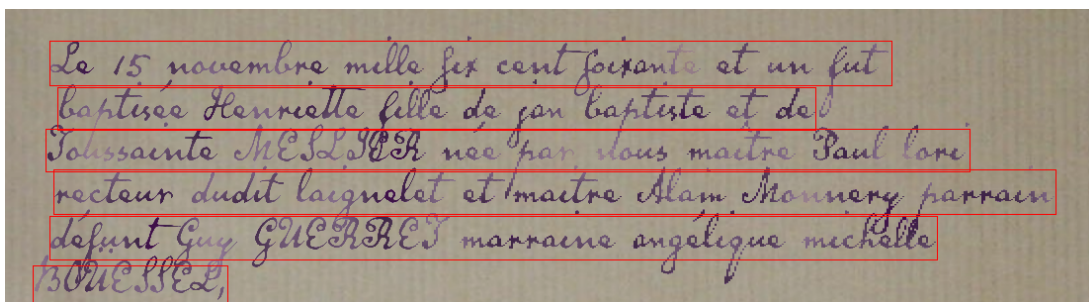 Le 15 novembre mille six cent soixante et un fut
baptisée Henriette fille de jan baptiste et de
Toussainte MESLIER née par nous maitre Paul lori
recteur dudit laignelet et maitre Alain Monnery parrain
défunt Guy GUERRET marraine angélique michelle
BOÜESSEL,